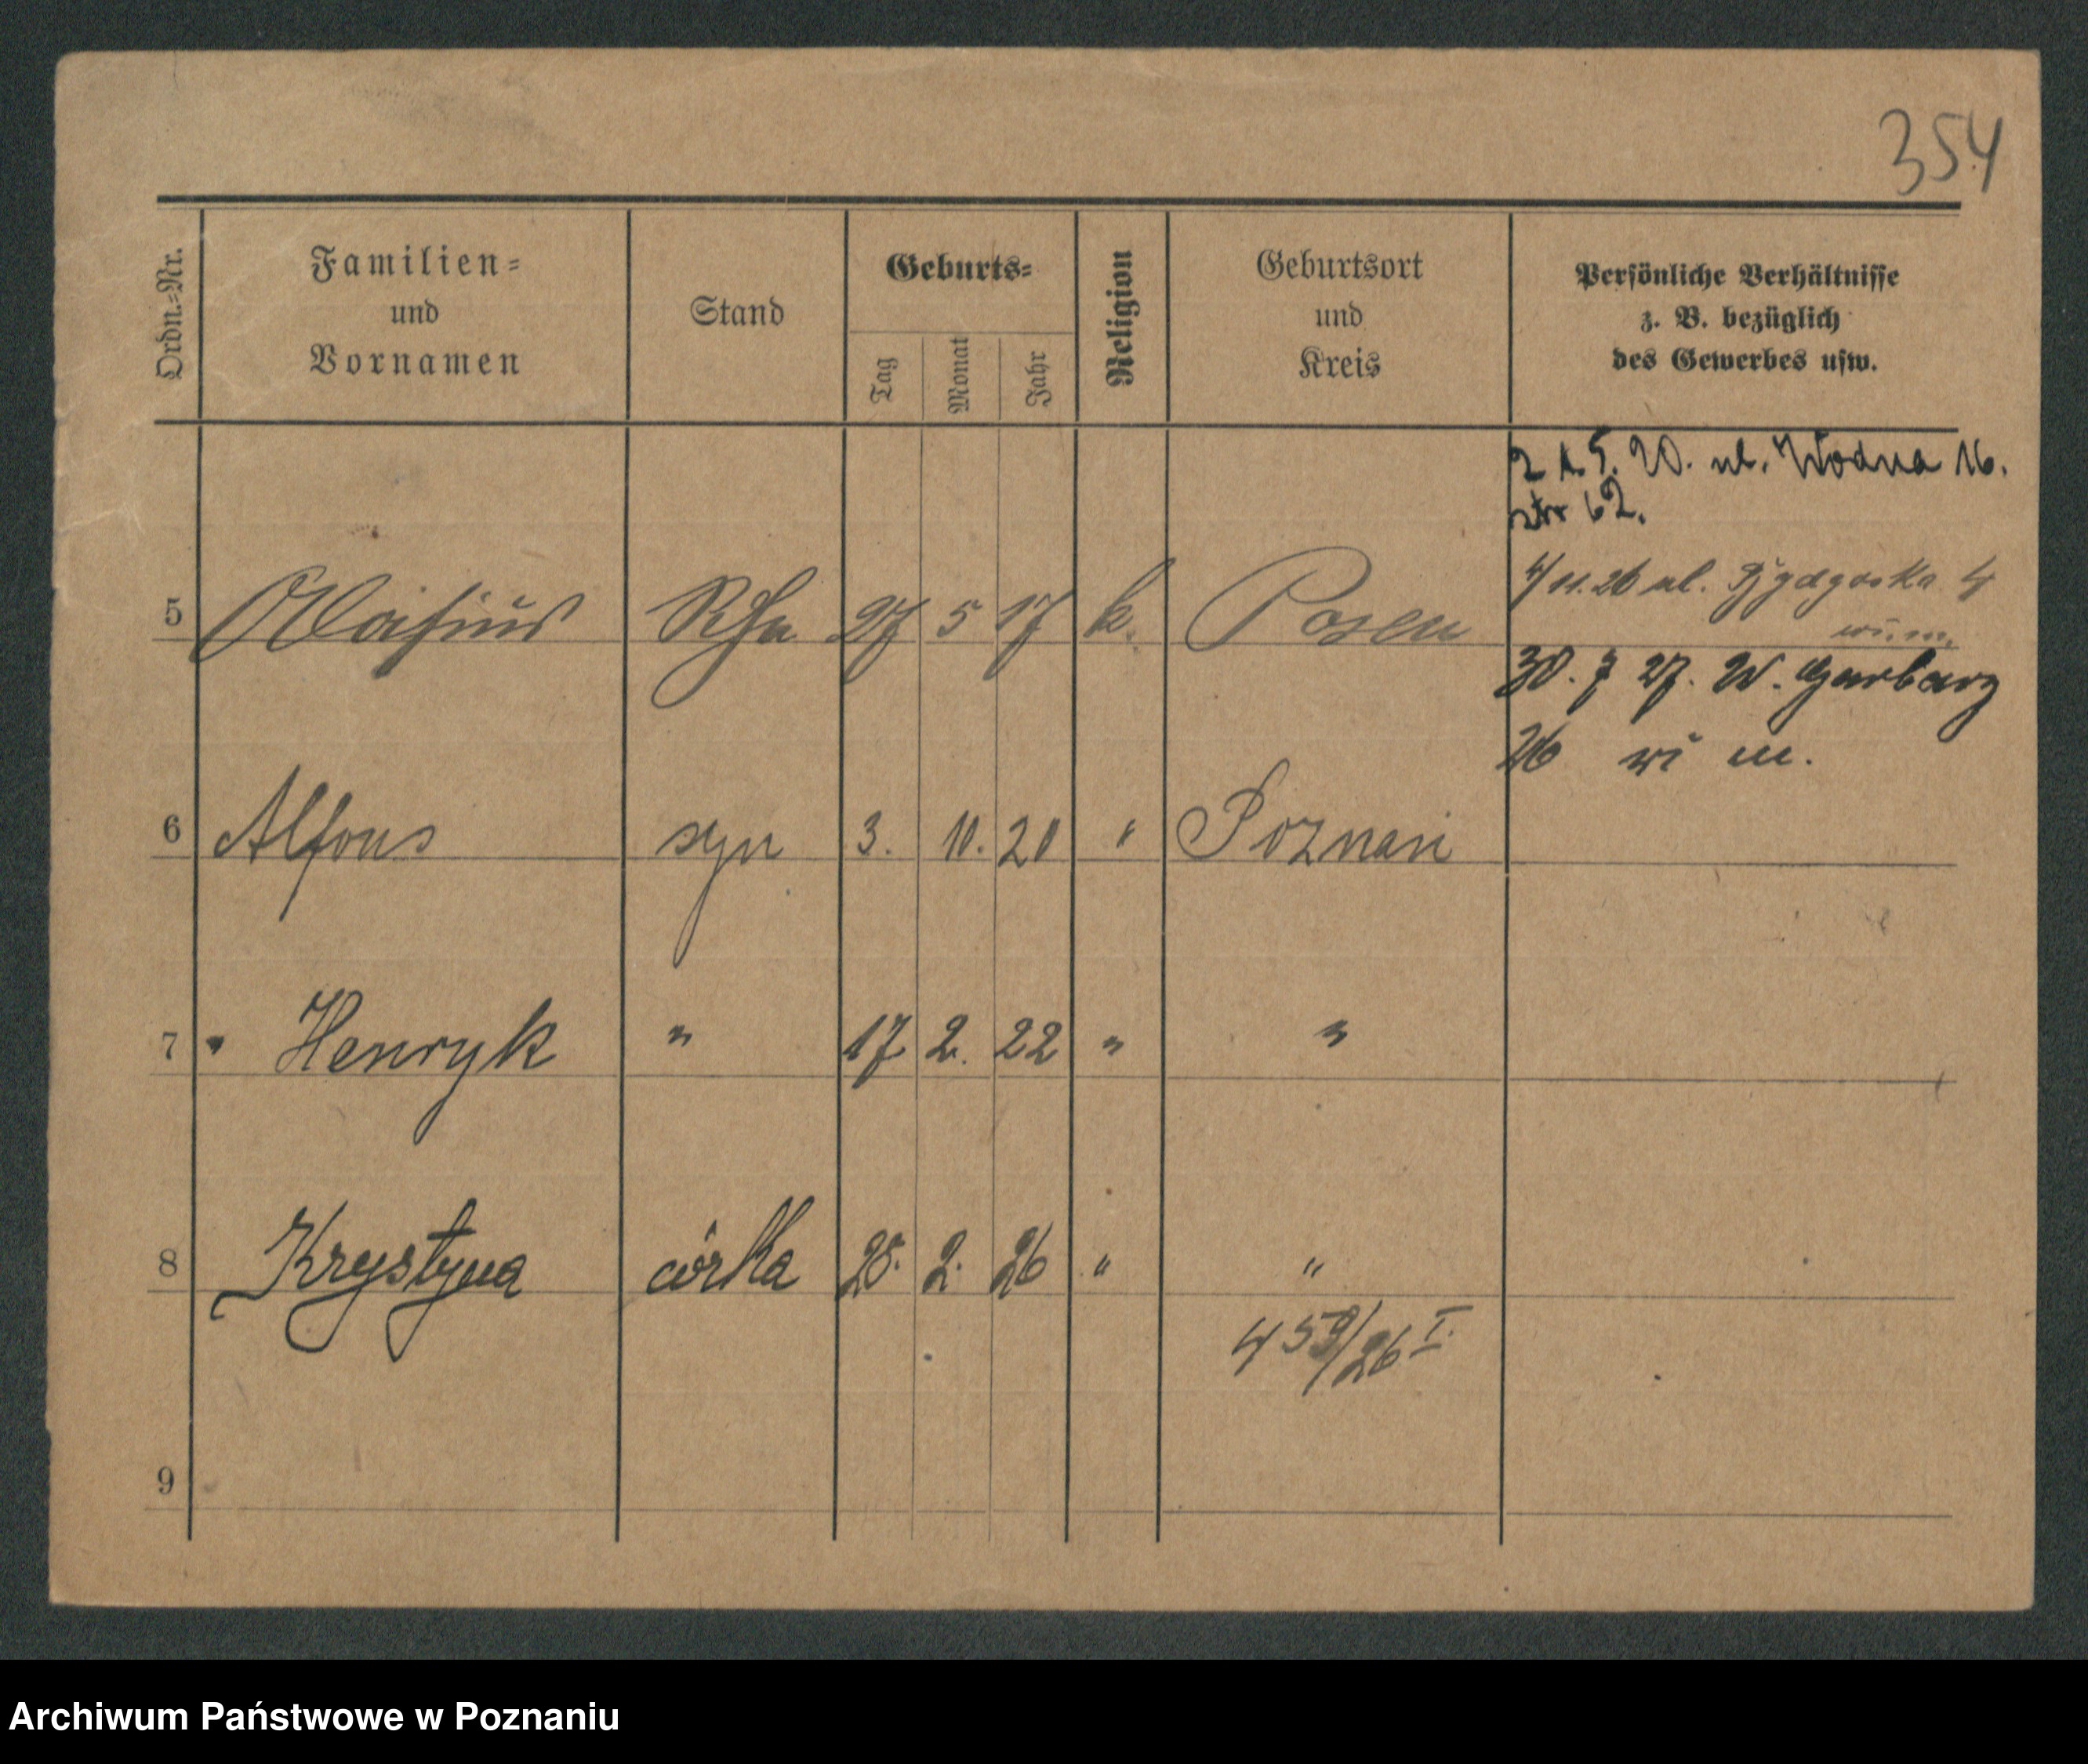 354
Ordn.-Nr.
Familien-
und
Vornamen
Stand
Geburts-
Tag
Monat
Jahr
Religion
Geburtsort
und
Kreis
Persönliche Verhältnisse
z. B. bezüglich
des Gewerbes usw.
20. ul. Wodna 16.
62.
4/11.26 ul.
5 27 5 17 k. Posen
30. 7 27. W. Garbary
26 wi m.
6 Alfons syn 3. 10. 20 " Poznań
7 " Henryk " 17 2. 22 " "
8 Krystyna córka 2. 26 " "
459/26 I.
9
Archiwum Państwowe w Poznaniu